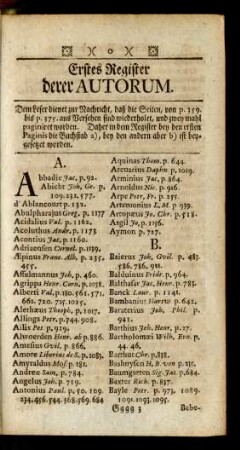 Erstes Register
derer AUTORUM.
Dem Leser dienet zur Nachricht, daß die Seiten, von p. 359.
bis p. 375. aus Versehen sind wiederholet, und zwey mahl
paginiret worden. Daher in dem Register bey den ersten
Paginis die Buchstab a), bey den andern aber b) ist bey-
gesetzet worden.
A.
Abbadie Jac. p. 92.
Abicht Joh. Ge. p.
109. 232. 577.
d'Ablancourt p. 131.
Abulpharajus Greg. p. 1177
Acidalius Val. p. 1162.
Acoluthus Andr. p. 1173
Acontius Jac. p. 1160.
Adriaensen Cornel. p. 1139.
Alpinus Franc. Alb. p. 235.
455.
Affulmannus Joh. p. 460
Agrippa Henr. Corn. p. 1018.
Alberti Val. p. 180. 561. 571.
661. 720. 725. 1025.
Alethæus Theoph. p. 1017.
Allinga Petr. p. 744. 908.
Allix Pet. p. 919.
Alwoerden Henr. ab p. 886.
Amesius Guil. p. 866.
Amore Liberius de S. p. 1083.
Amyraldus Mos. p. 181.
Andreæ Sam. p. 784.
Angelus Joh. p. 719.
Antonius Paul. p. 50. 109.
234. 456. 544. 568. 569. 684
Aquinas Thom. p. 644.
Arcuarius Daphn. p. 1019.
Arminius Jac. p. 864.
Arnoldus Nic. p. 916.
Arpe Petr. Fr. p. 255.
Artemonius L. M. p. 939.
Artopæus Jo. Chr. p. 518.
Asgil Jo. p. 1196.
Aymon p. 727.
B.
Baierus Joh. Guil. p. 483.
586. 786. 911.
Balduinus Fridr. p. 964.
Balthasar Jac. Henr. p. 785.
Banck Laur. p. 1141.
Bambamius Hartv. p. 642.
Baraterius Joh. Phil. p.
982.
Barthius Joh. Henr. p. 27.
Bartholomæi Wilh. Ern. p.
44. 46.
Barthut Chr. p. 838.
Bashuysen H. B. von p. 131.
Baumgarten Sig. Jac. p. 684.
Baxter Rich. p. 837.
Bayle Petr. p. 973. 1089.
1091. 1093. 1095.
Gggg 3
Bebe-